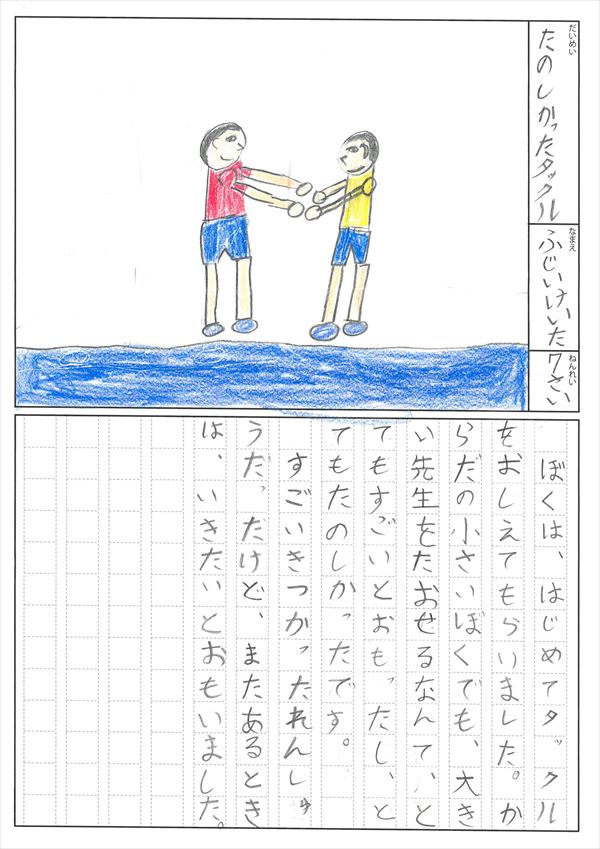 だいめい
たのしかったタックル
なまえ
ふじいけいた
ねんれい
7さい
ぼくは、はじめてタックル
をおしえてもらいました。か
らだの小さいぼくでも、大き
い先生をたおせるなんて、と
てもすごいとおもったし、と
てもたのしかったです。
すごいきつかったれんしゅ
うだったけど、またあるとき
は、いきたいとおもいました。